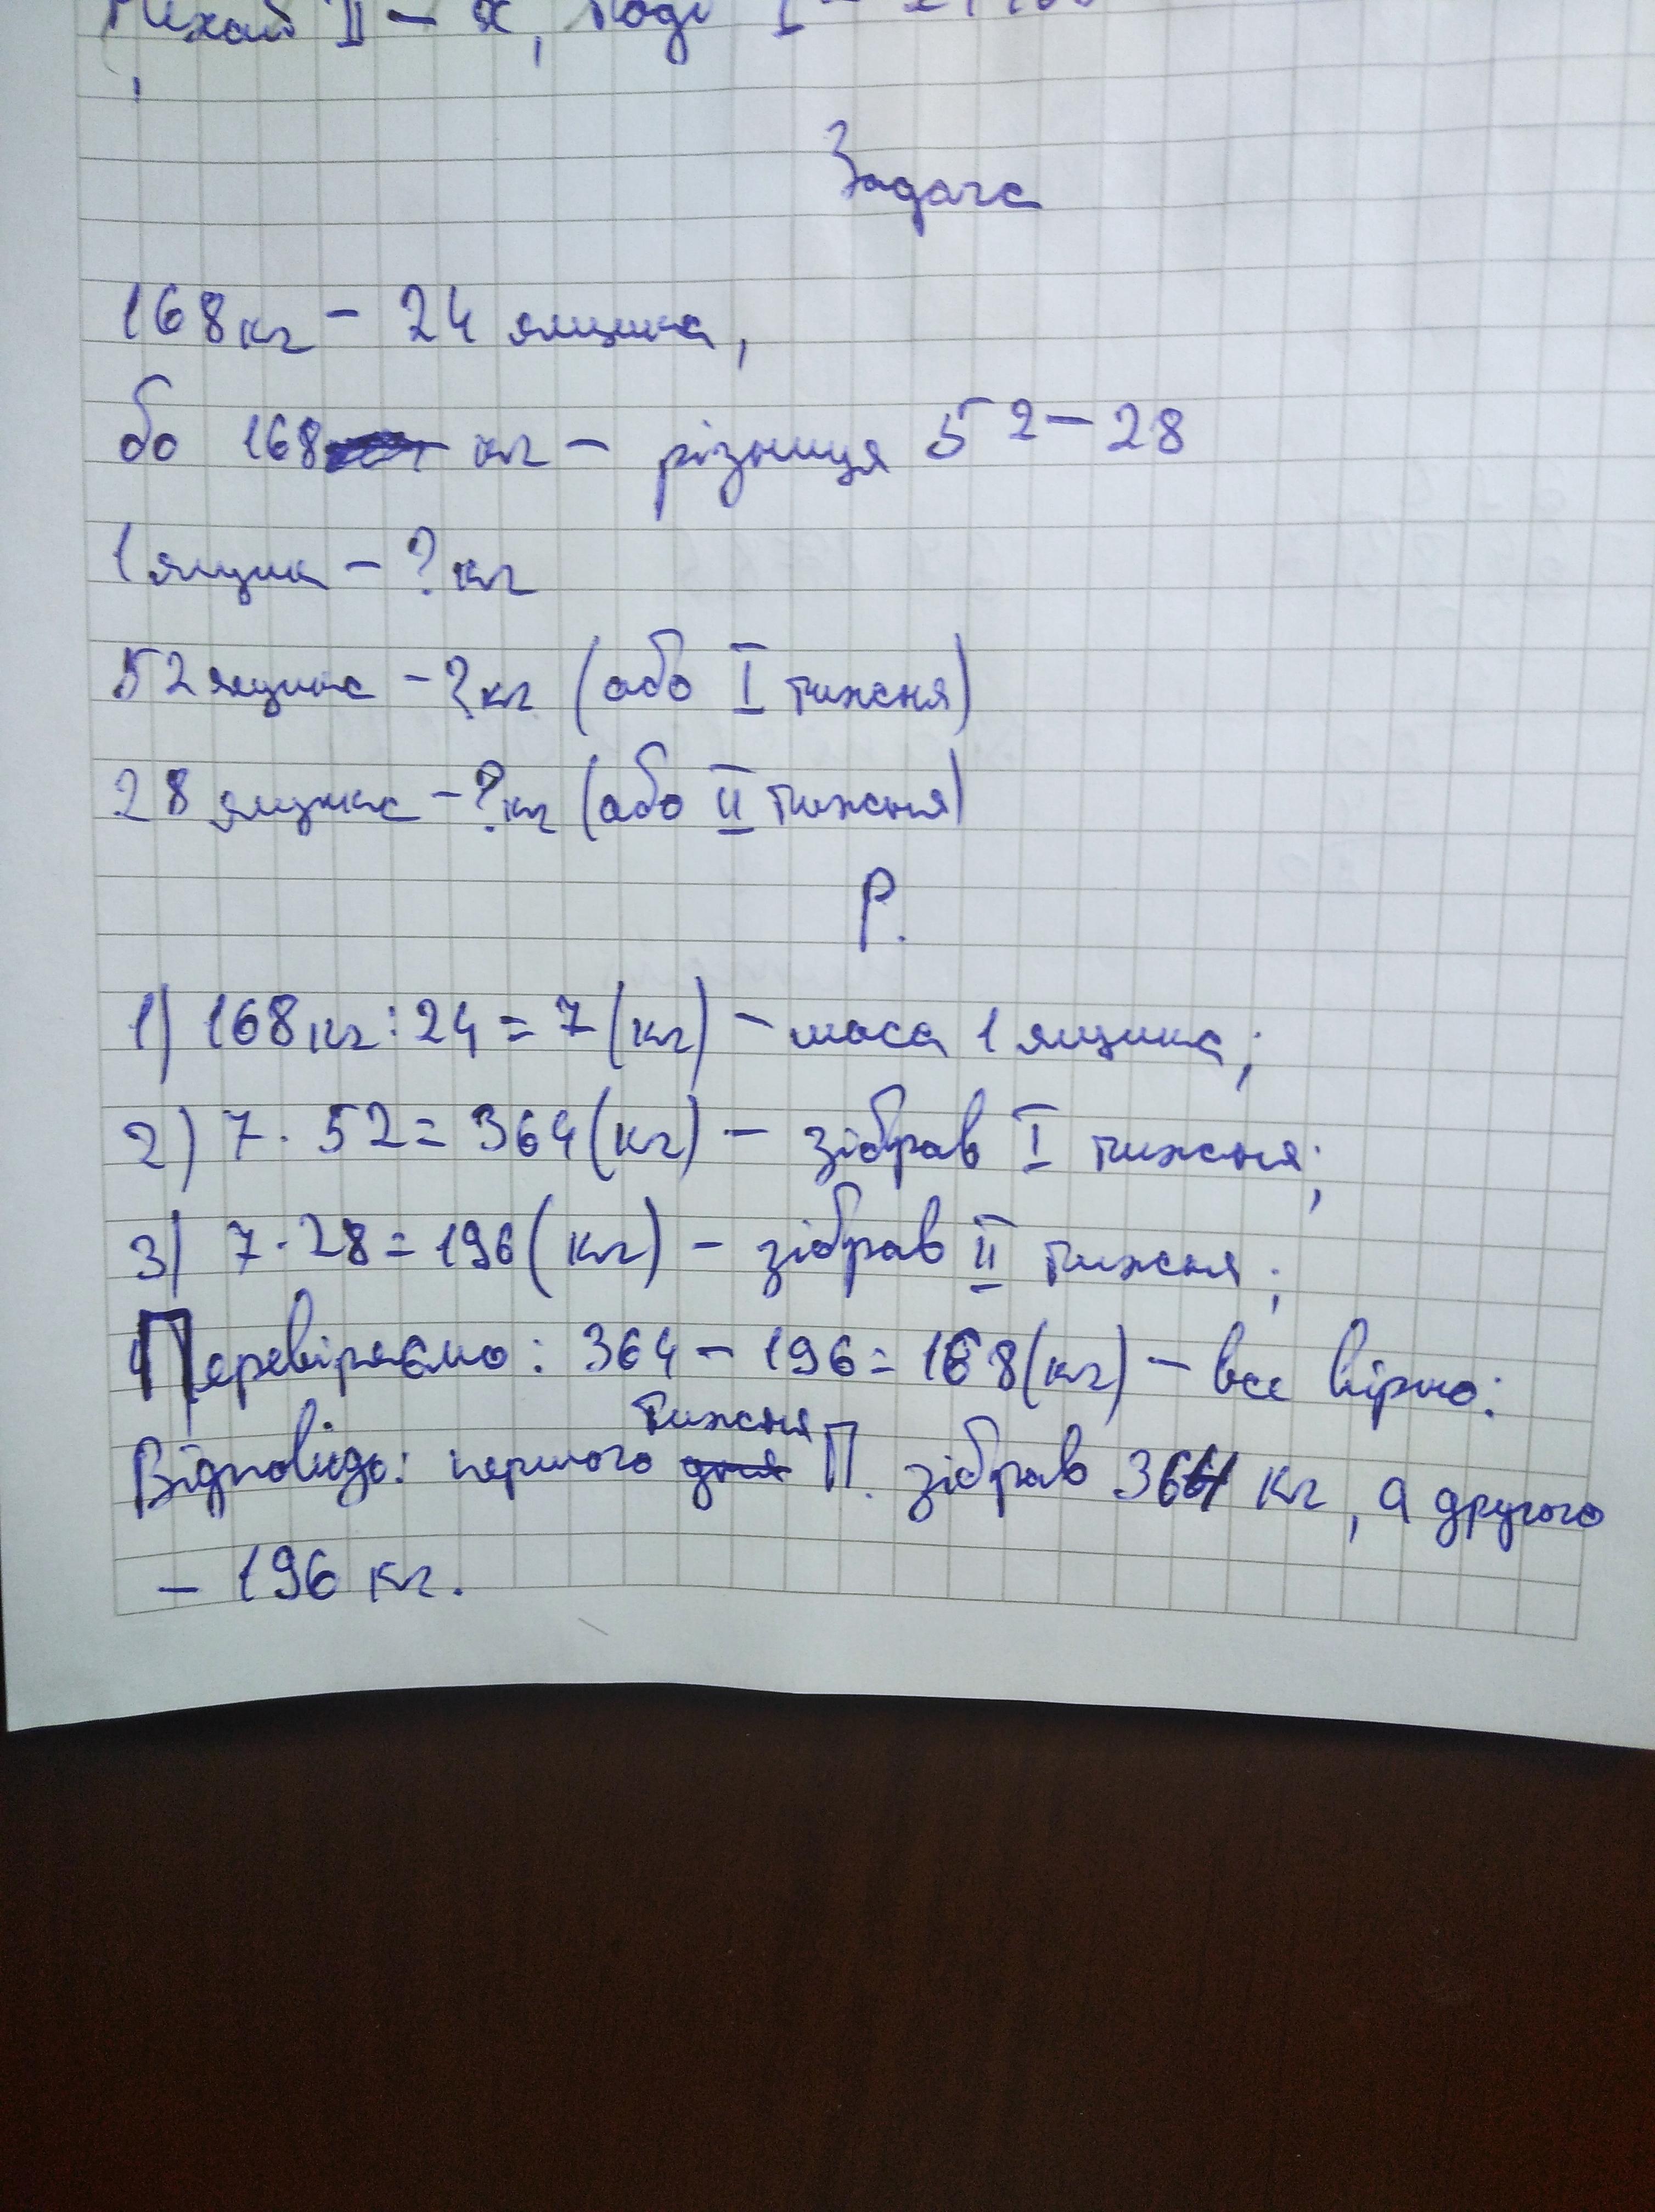 Нехай II – x, тоді I –
Задача
168 кг – 24 ящика,
бо 168 кг – різниця 52 – 28
1 ящик – ? кг
52 ящика – ? кг (або I тижня)
28 ящика – ? кг (або II тижня)
Р.
1) 168 кг : 24 = 7 (кг) – маса 1 ящика;
2) 7 · 52 = 364 (кг) – зібрав I тижня;
3) 7 · 28 = 196 (кг) – зібрав II тижня;
Перевіряємо: 364 – 196 = 168 (кг) – все вірно:
Відповідь: першого тижня П. зібрав 364 кг, а другого
– 196 кг.